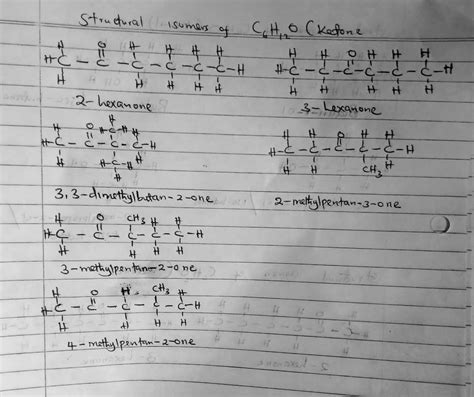 Structural isomers of C6H12O (Ketone
H O H H H H
H-C-C-C-C-C-C-H
H H H H H
H H O H H H
H-C-C-C-C-C-C-H
H H H H H
2-hexanone
3-hexanone
H
H O H-C-H H
H-C-C-C-C-H
H H-C-H H
H
H H O H H
H-C-C-C-C-C-H
H H CH3 H
3,3-dimethylbutan-2-one
2-methylpentan-3-one
H O CH3 H H
H-C-C-C-C-C-H
H H H H
3-methylpentan-2-one
H O H CH3 H
H-C-C-C-C-C-H
H H H H
4-methylpentan-2-one